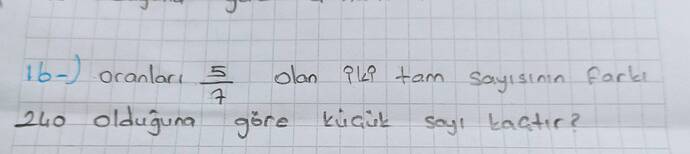 16-) Oranları 5/7 olan iki tam sayısının farkı
240 olduğuna göre küçük sayı kaçtır?